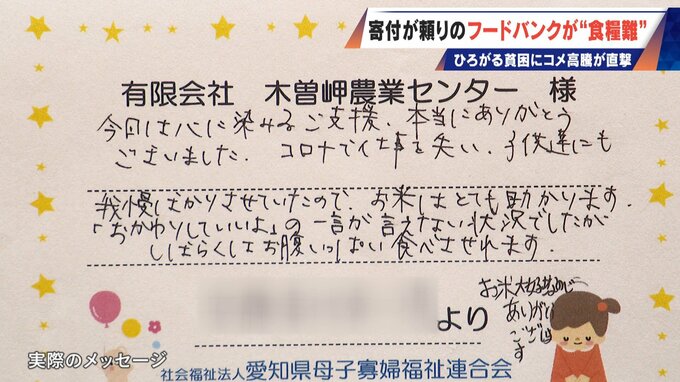 寄付が頼りのフードバンクが“食糧難”
ひろがる貧困にコメ高騰が直撃
有限会社 木曽岬農業センター 様
今回は心に染みるご支援、本当にありがとう
ございました。 コロナで仕事を失い、子供達にも
我慢ばかりさせていたので、お米はとても助かります。
「おかわりしていいよ」の一言が言えない状況でしたが
しばらくはお腹いっぱい食べさせれます。
より
お米大好きなので
ありがとう
ござい
ます
実際のメッセージ
社会福祉法人 愛知県母子寡婦福祉連合会